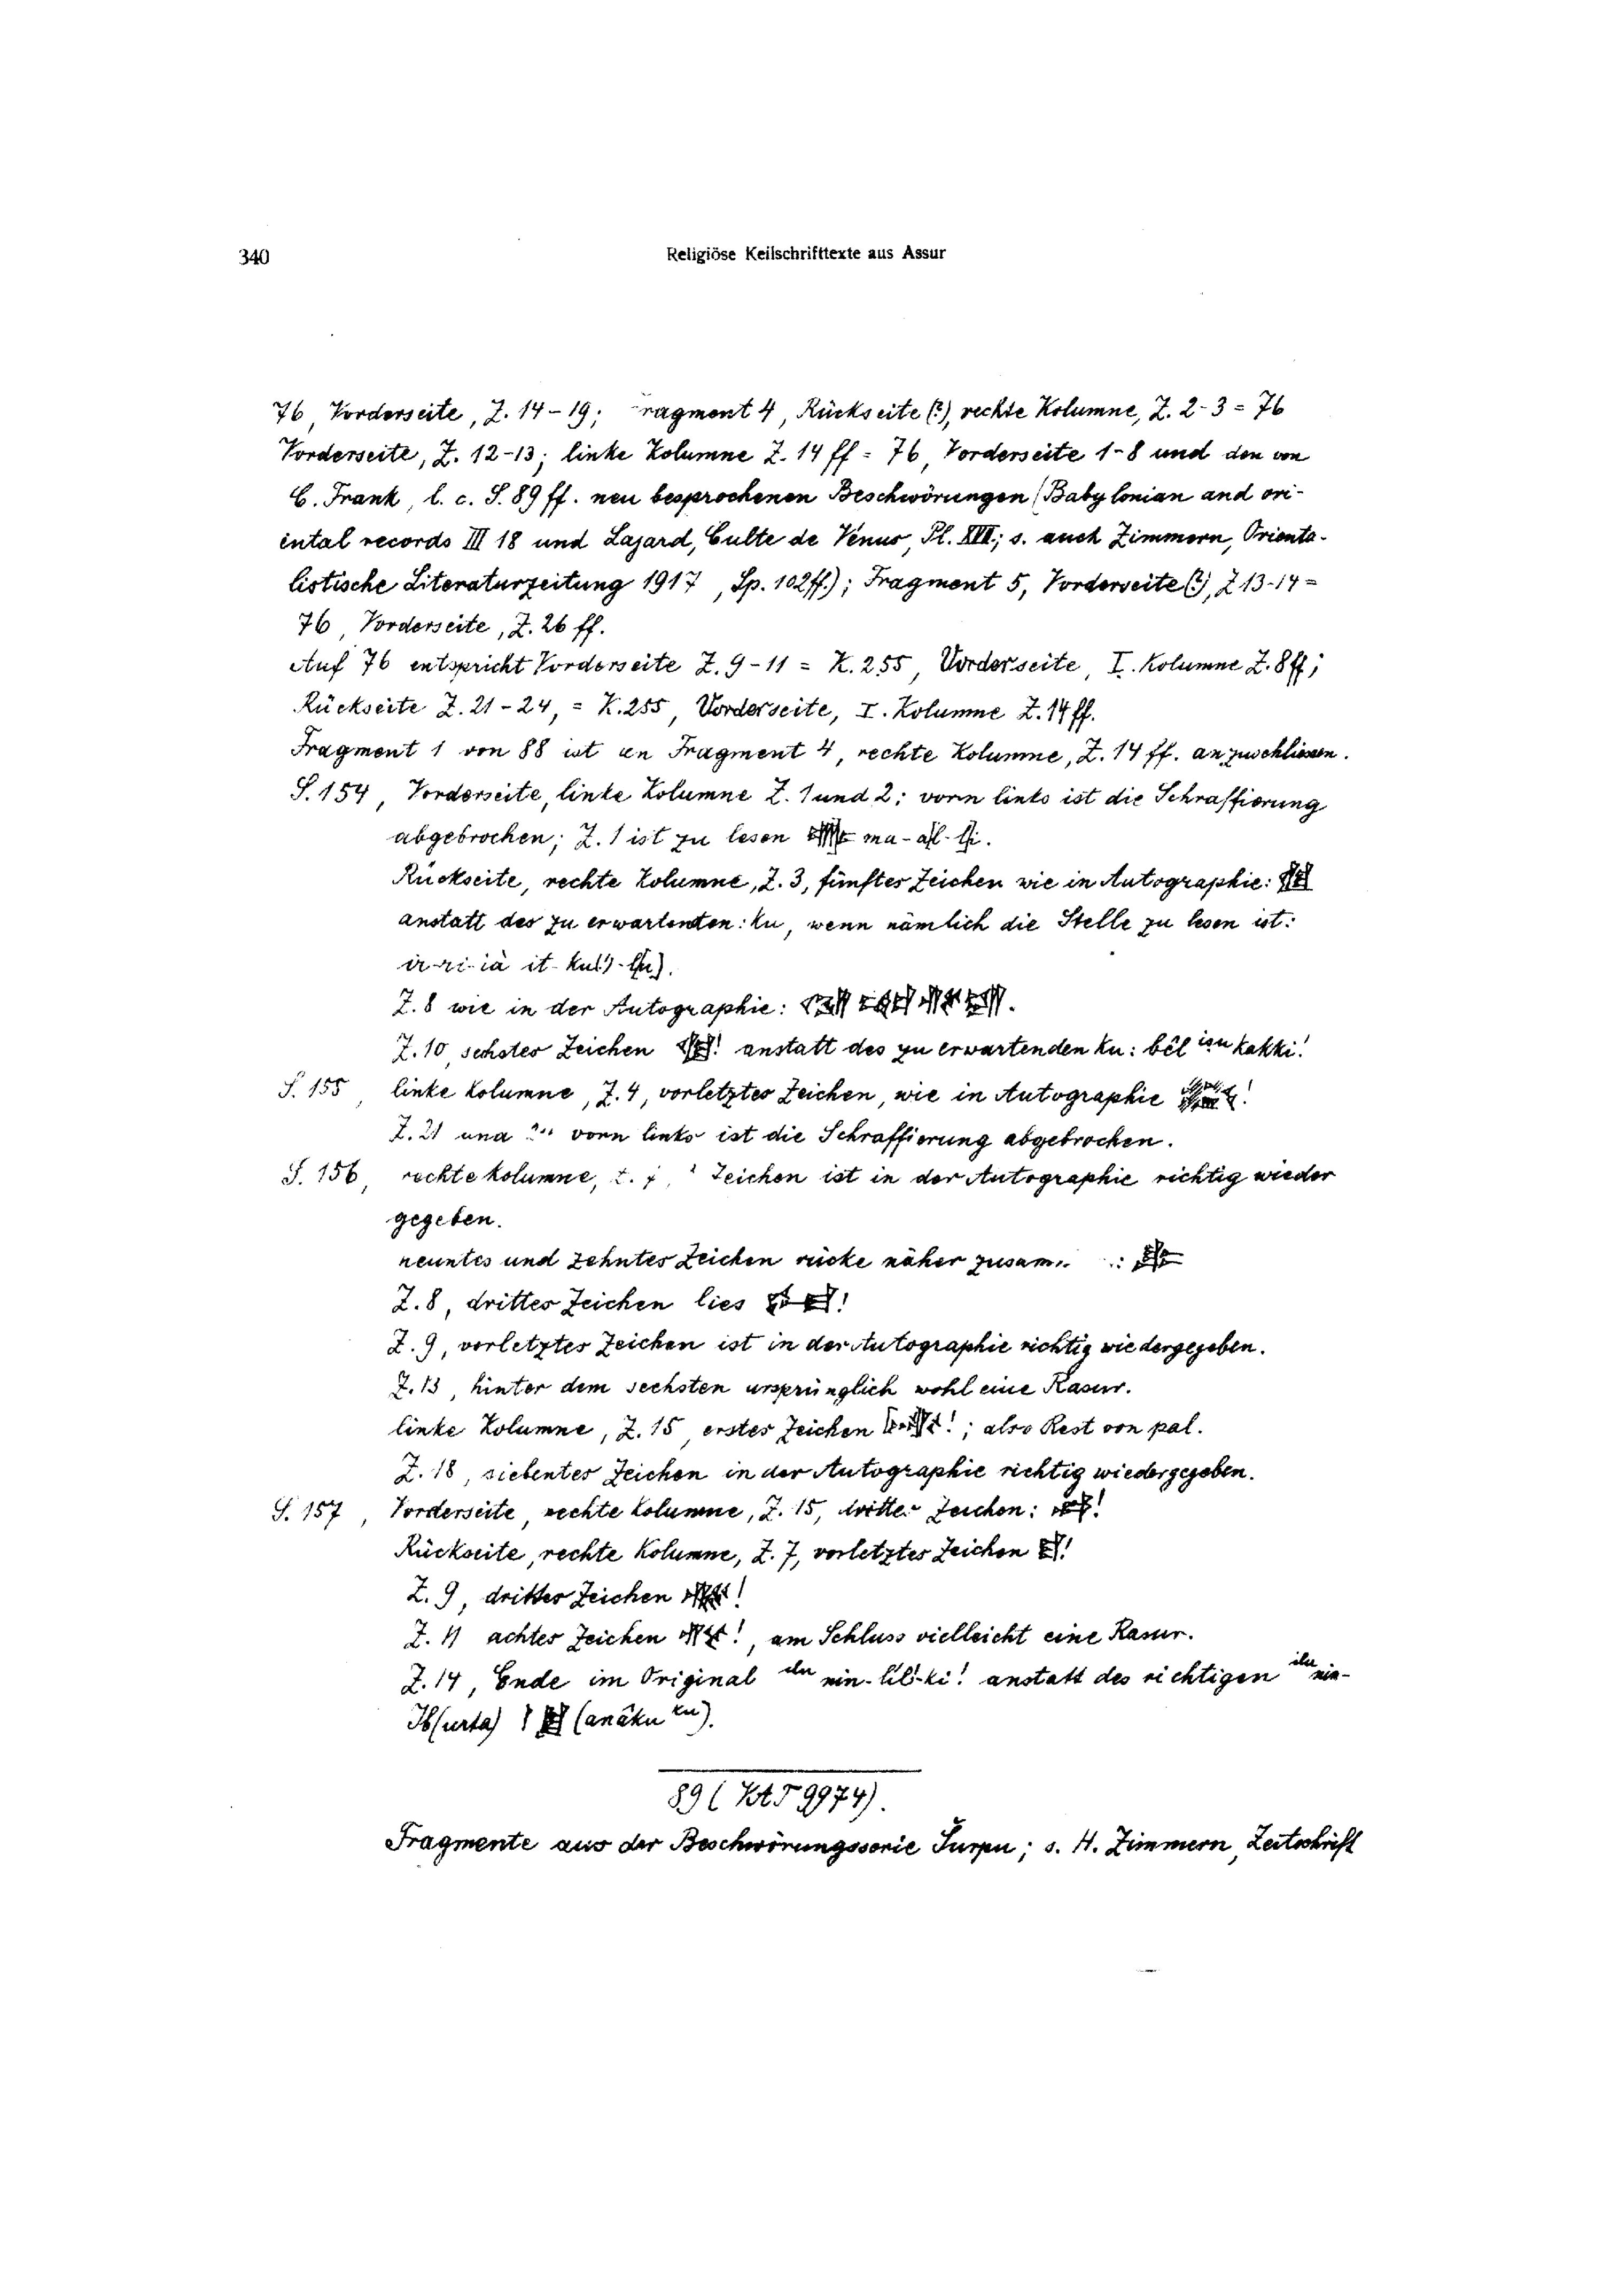 340
Religiöse Keilschrifttexte aus Assur
76, Vorderseite, Z. 14-19; ragment 4, Rückseite (?), rechte Kolumne, Z. 2-3 = 76
Vorderseite, Z. 12-13; linke Kolumne Z. 14 ff = 76, Vorderseite 1-8 und den von
C. Frank, l. c. S. 89 ff. neu besprochenen Beschwörungen (Babylonian and ori-
ental records III 18 und Lajard, Culte de Venus, Pl. XVII; s. auch Zimmern, Orienta-
listische Literaturzeitung 1917, Sp. 102ff.); Fragment 5, Vorderseite (?), Z 13-14 =
76, Vorderseite, Z. 26 ff.
Auf 76 entspricht Vorderseite Z. 9-11 = K. 255, Vorderseite, I. Kolumne Z. 8ff;
Rückseite Z. 21-24, = K. 255, Vorderseite, I. Kolumne Z. 14 ff.
Fragment 1 von 88 ist an Fragment 4, rechte Kolumne, Z. 14 ff. anzuschliessen.
S. 154, Vorderseite, linke Kolumne Z. 1 und 2: vorn links ist die Schraffierung
abgebrochen; Z. 1 ist zu lesen ma-
Rückseite, rechte Kolumne, Z. 3, fünftes Zeichen wie in Autographie:
anstatt des zu erwartenden: ku, wenn nämlich die Stelle zu lesen ist:
ir-ri-ià it-
Z. 8 wie in der Autographie:
Z. 10, sechstes Zeichen ! anstatt des zu erwartenden ku: bêl iṣu kakki!
S. 155, linke Kolumne, Z. 4, vorletztes Zeichen, wie in Autographie !
Z. 21 und vorn links ist die Schraffierung abgebrochen.
S. 156, rechte Kolumne, Zeichen ist in der Autographie richtig wieder
gegeben.
neuntes und zehntes Zeichen rücke näher zusam
Z. 8, drittes Zeichen lies !
Z. 9, vorletztes Zeichen ist in der Autographie richtig wiedergegeben.
Z. 13, hinter dem sechsten ursprünglich wohl eine Rasur.
linke Kolumne, Z. 15, erstes Zeichen !; also Rest von pal.
Z. 18, siebentes Zeichen in der Autographie richtig wiedergegeben.
S. 157, Vorderseite, rechte Kolumne, Z. 15, drittes Zeichen: !
Rückseite, rechte Kolumne, Z. 7, vorletztes Zeichen !
Z. 9, drittes Zeichen !
Z. 11 achtes Zeichen !, am Schluss vielleicht eine Rasur.
Z. 14, Ende im Original ilu nin-lil-ki! anstatt des richtigen ilu nin-
Ib(urta) (anâku ku).
89 (VAT 9974).
Fragmente aus der Beschwörungsserie Šurpu; s. H. Zimmern, Zeitschrift